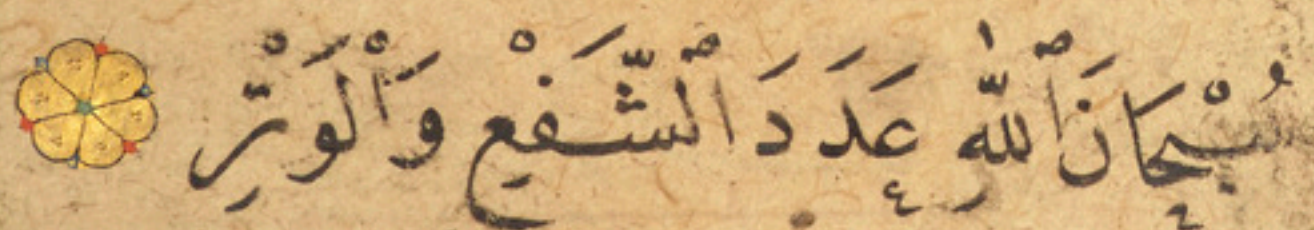 سُبْحَانَ ٱللّٰهِ عَدَدَ ٱلشَّفْعِ وَٱلْوَتْرِ